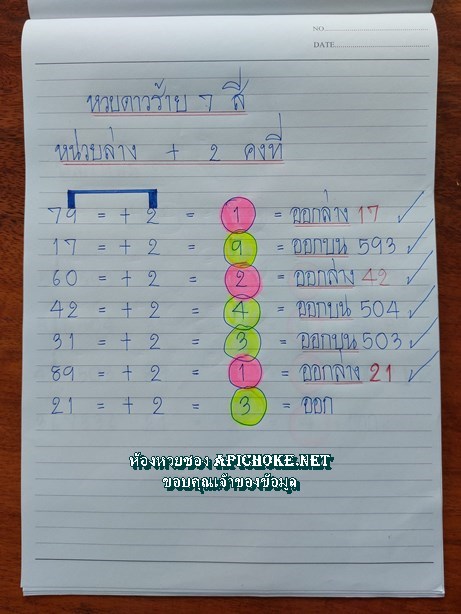 NO.
DATE
หวยดาวร้าย 7 สี
หน่วยล่าง + 2 คงที่
79 = + 2 = 1 = ออกล่าง 17 ✓
17 = + 2 = 9 = ออกบน 593 ✓
60 = + 2 = 2 = ออกล่าง 42 ✓
42 = + 2 = 4 = ออกบน 504 ✓
31 = + 2 = 3 = ออกบน 503 ✓
89 = + 2 = 1 = ออกล่าง 21 ✓
21 = + 2 = 3 = ออก
ห้องหวยซอง APICHOKE.NET
ขอบคุณเจ้าของข้อมูล